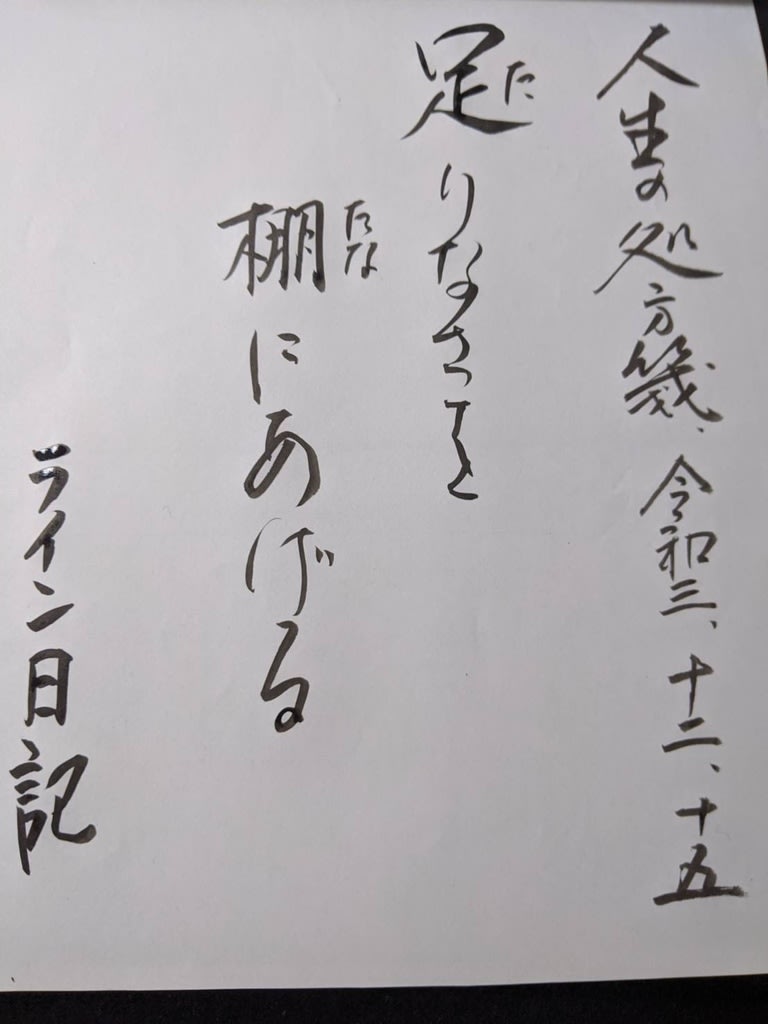 人生の処方箋、令和三、十二、十五
た
足りなさを
たな
棚にあげる
ライン日記